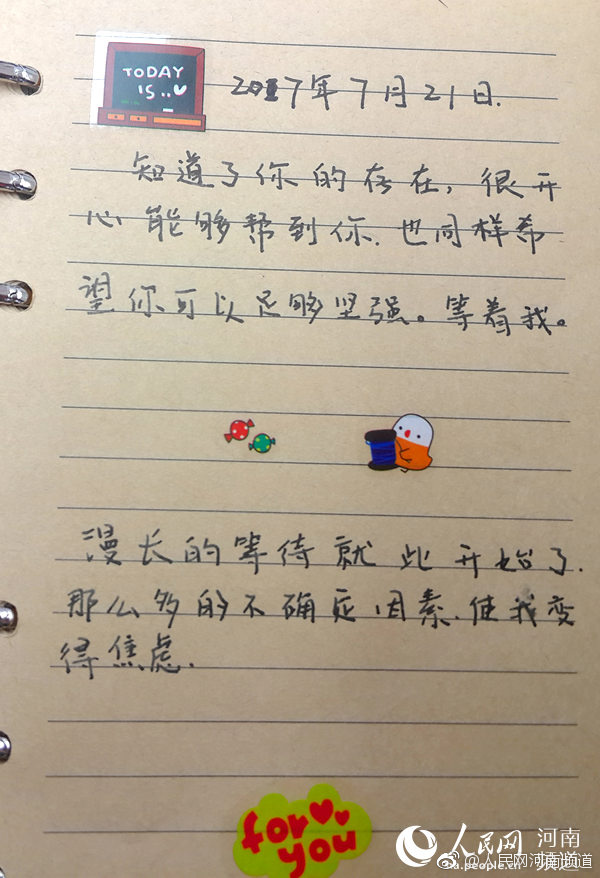 TODAY
IS..
2017年7月21日.
知道了你的存在，很开
心能够帮到你.也同样希
望你可以足够坚强。等着我。
漫长的等待就此开始了.
那么多的不确定因素.使我变
得焦虑.
for
you
人民网 河南
@人民网河南频道